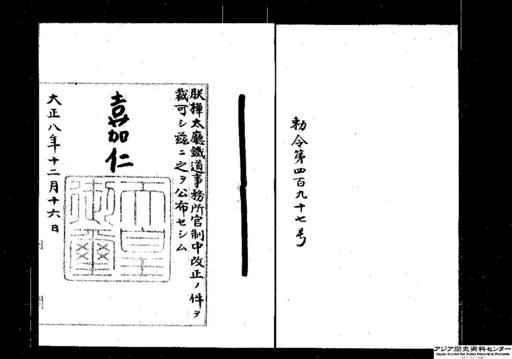 勅令第四百九十七号
朕樺太廳鐵道事務所官制中改正ノ件ヲ
裁可シ茲ニ之ヲ公布セシム
嘉仁
天皇御璽
大正八年十二月十六日
アジア歴史資料センター
Japan Center for Asian Historical Records